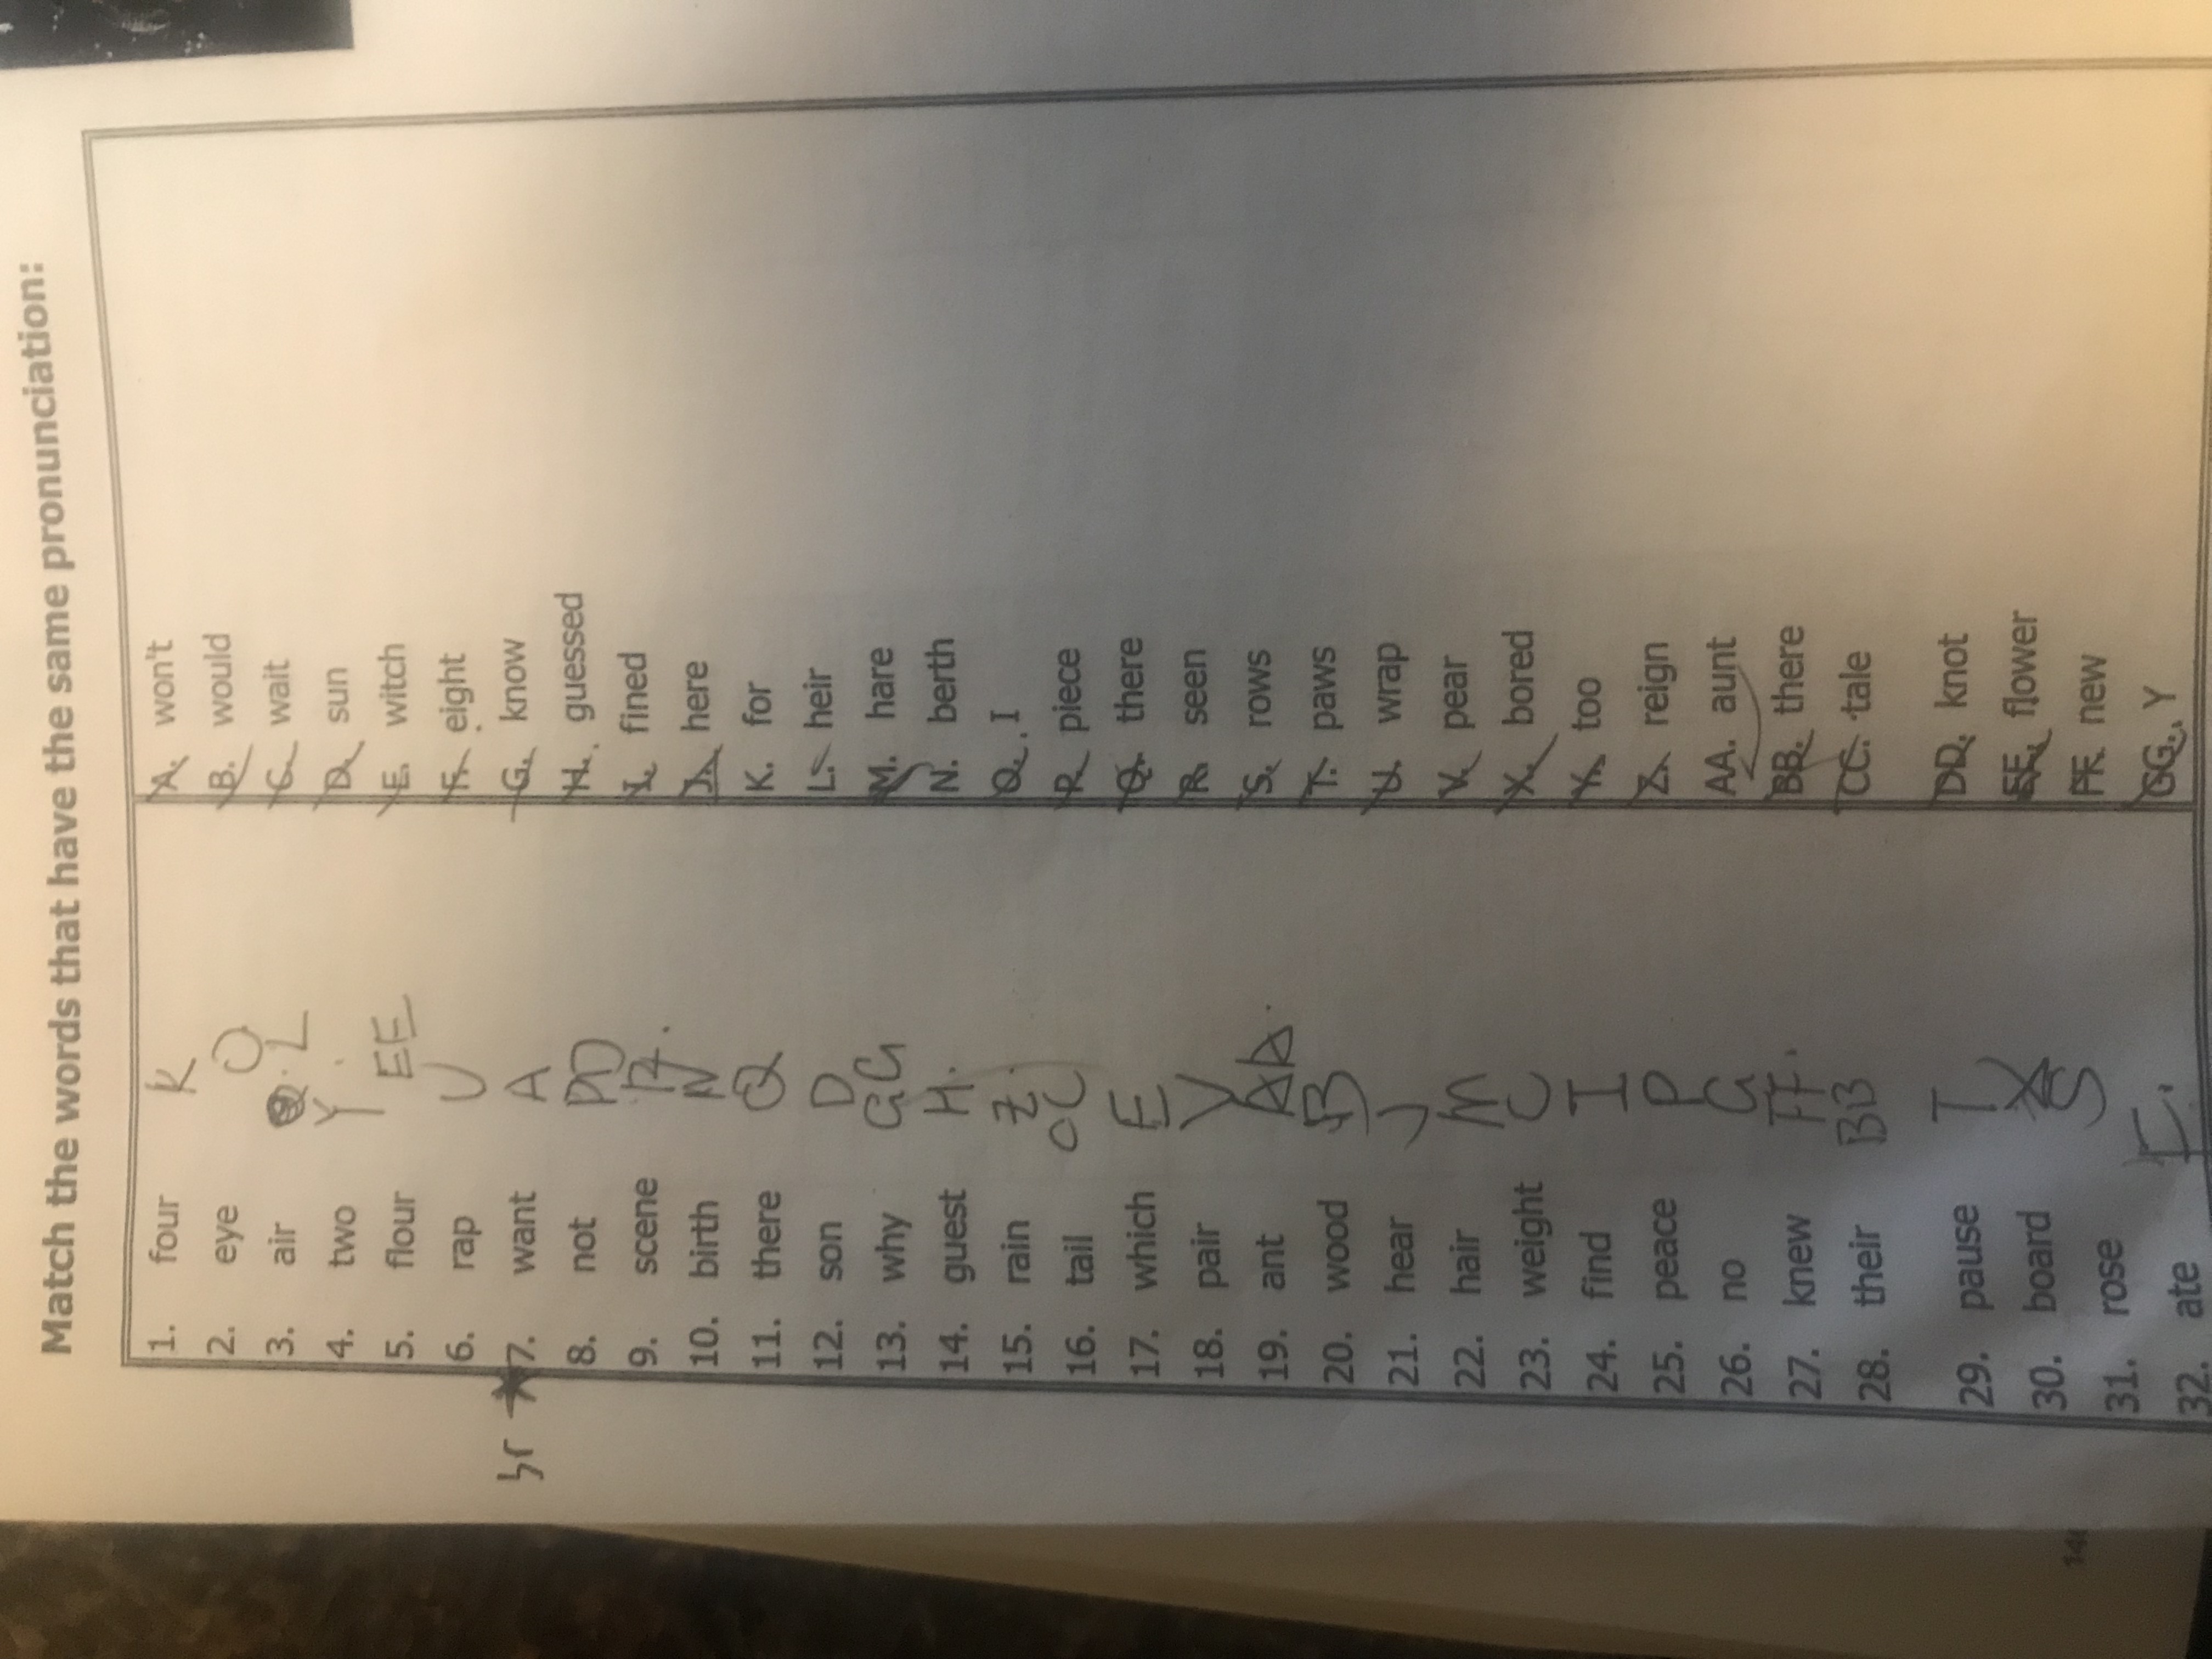 Match the words that have the same pronunciation:
1. four K
2. eye O
3. air L
4. two Y.
5. flour EE
6. rap U
7. want A
8. not DD
9. scene R.
10. birth N
11. there Q
12. son D
13. why GG
14. guest H.
15. rain Z.
16. tail CC
17. which E
18. pair V
19. ant AA.
20. wood B
21. hear J
22. hair M
23. weight C
24. find I
25. peace P
26. no G
27. knew FF.
28. their BB
29. pause T
30. board X
31. rose S
32. ate F.
A. won't
B. would
C. wait
D. sun
E. witch
F. eight
G. know
H. guessed
I. fined
J. here
K. for
L. heir
M. hare
N. berth
O. I
P. piece
Q. there
R. seen
S. rows
T. paws
U. wrap
V. pear
X. bored
Y. too
Z. reign
AA. aunt
BB. there
CC. tale
DD. knot
EE. flower
FF. new
GG. Y